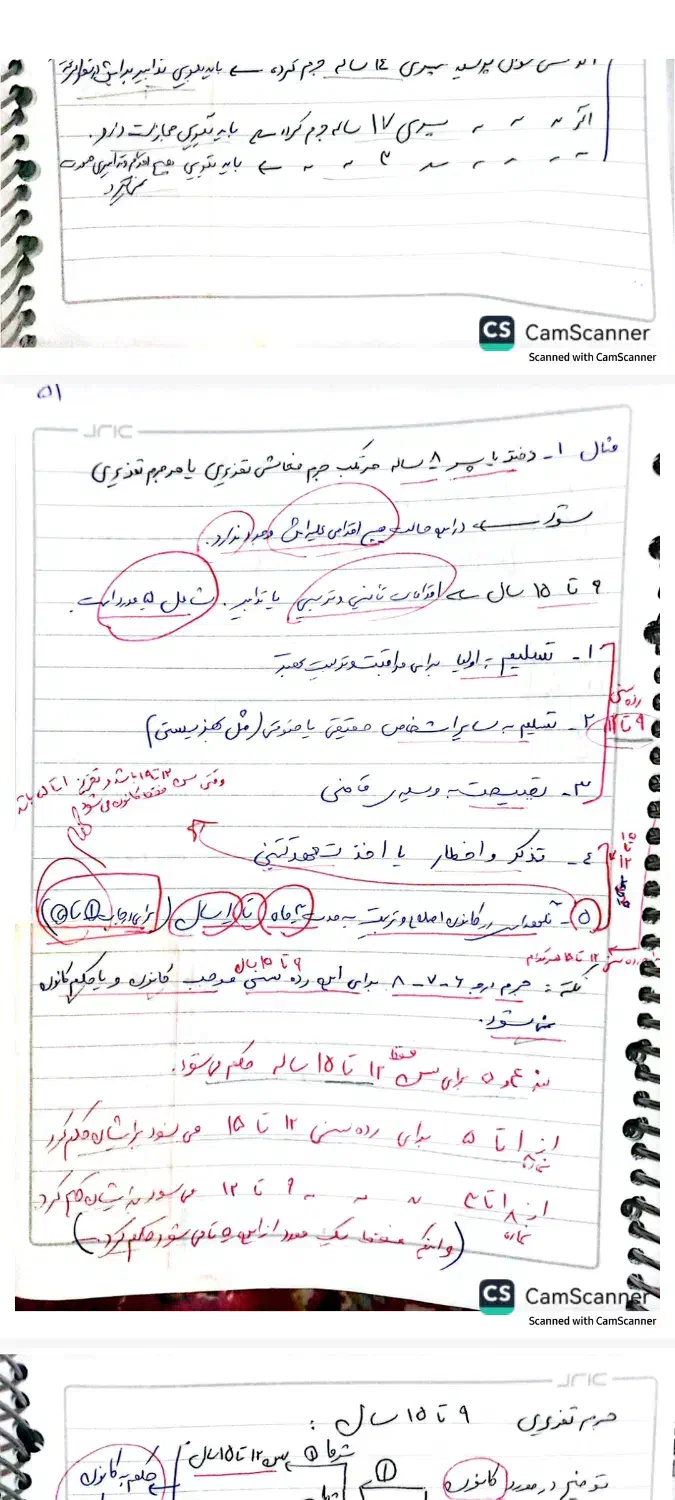 سوال پرسید پسری ۱۴ ساله جرم کرده ← باید بگویی تدابیر برایش
اگر " " " پسری ۱۷ ساله جرم کرده ← باید بگویی مجازات دارد.
" " " " " ۳ " " ← باید بگویی هیچ اقدام و تدابیری صورت
نمیگیرد
CS CamScanner
Scanned with CamScanner
۵۱
مثال ۱- دختر یا پسر ۸ ساله مرتکب جرم فحاشی تعزیری یا هر جرم تعزیری
میشود ← در این حالت هیچ اقدامی علیه اش وجود ندارد.
۹ تا ۱۵ سال ← اقدامات تأمینی و تربیتی یا تدابیر. شامل ۵ مورد است.
۱- تسلیم به اولیا برای مراقبت و تربیت بهتر
رده سنی
۹ تا ۱۲
۲- تسلیم به سایر اشخاص حقیقی یا حقوقی (مثل بهزیستی)
۳- نصیحت به وسیله ی قاضی
وقتی سن ۱۲ تا ۱۵ باشد و تعزیر ۱ تا ۵ باشد
فقط کانون می شود
۴- تذکر و اخطار یا اخذ تعهد کتبی
۱۵
تا
۱۲
۵- نگهداری در کانون اصلاح و تربیت به مدت ۳ ماه تا ۱ سال (برای درجات ۱ تا ۵)
رده سنی ۱۲ تا ۱۵ هر کدام
۹ تا ۱۵ سال
نکته: جرم درجه ۶-۷-۸ برای این رده سنی موجب کانون و یا حکم کانون
نمی شود.
بند ۵ برای سن فقط ۱۲ تا ۱۵ ساله حکم می شود.
از ۱ تا ۵ برای رده سنی ۱۲ تا ۱۵ می شود برایشان حکم کرد
از ۱ تا ۳ " " " ۹ تا ۱۲ می شود برایشان حکم کرد
شماره
(و اینکه فقط یک مورد از این ۵ تا می شود حکم کرد.)
CS CamScanner
Scanned with CamScanner
جرم تعزیری ۹ تا ۱۵ سال :
شرط ① سن ۱۲ تا ۱۵ سال
حکم به کانون
توضیح در مورد کانون ①